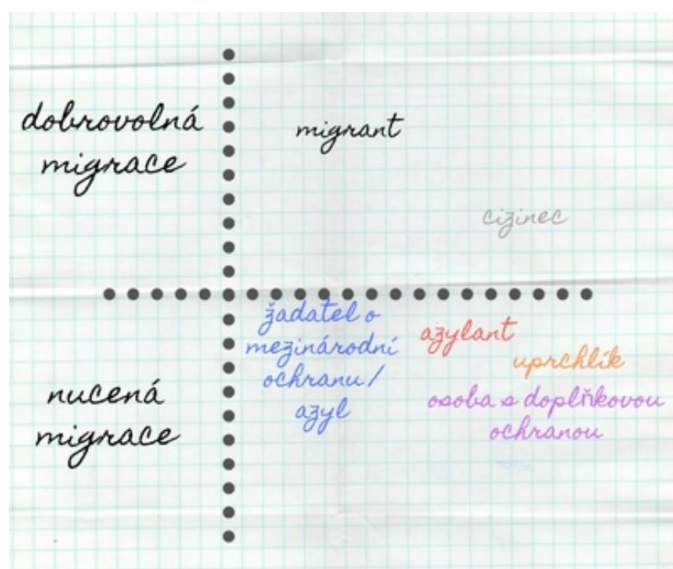 dobrovolná
migrace
migrant
cizinec
nucená
migrace
žadatel o
mezinárodní
ochranu/
azyl
azylant
uprchlík
osoba s doplňkovou
ochranou